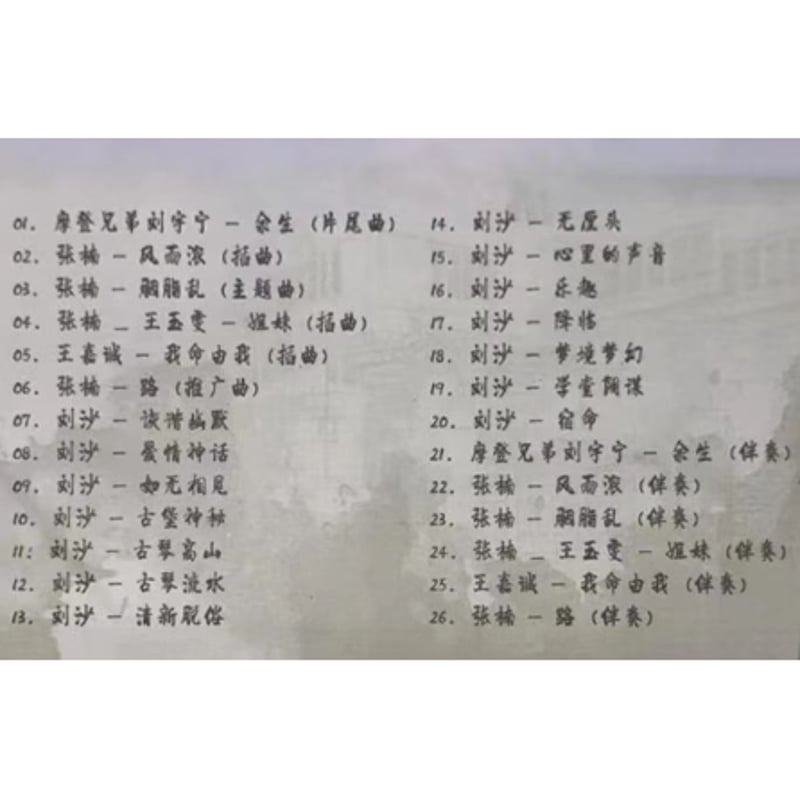 01. 摩登兄弟刘宇宁 — 余生 (片尾曲)
02. 张楠 — 风雨浓 (插曲)
03. 张楠 — 胭脂乱 (主题曲)
04. 张楠 _ 王玉雯 — 姐妹 (插曲)
05. 王嘉诚 — 我命由我 (插曲)
06. 张楠 — 路 (推广曲)
07. 刘沙 — 诙谐幽默
08. 刘沙 — 爱情神话
09. 刘沙 — 如无相见
10. 刘沙 — 古堡神秘
11: 刘沙 — 古琴高山
12. 刘沙 — 古琴流水
13. 刘沙 — 清新脱俗
14. 刘沙 — 无厘头
15. 刘沙 — 心里的声音
16. 刘沙 — 乐趣
17. 刘沙 — 降临
18. 刘沙 — 梦境梦幻
19. 刘沙 — 学堂阴谋
20. 刘沙 — 宿命
21. 摩登兄弟刘宇宁 — 余生 (伴奏)
22. 张楠 — 风雨浓 (伴奏)
23. 张楠 — 胭脂乱 (伴奏)
24. 张楠 _ 王玉雯 — 姐妹 (伴奏)
25. 王嘉诚 — 我命由我 (伴奏)
26. 张楠 — 路 (伴奏)